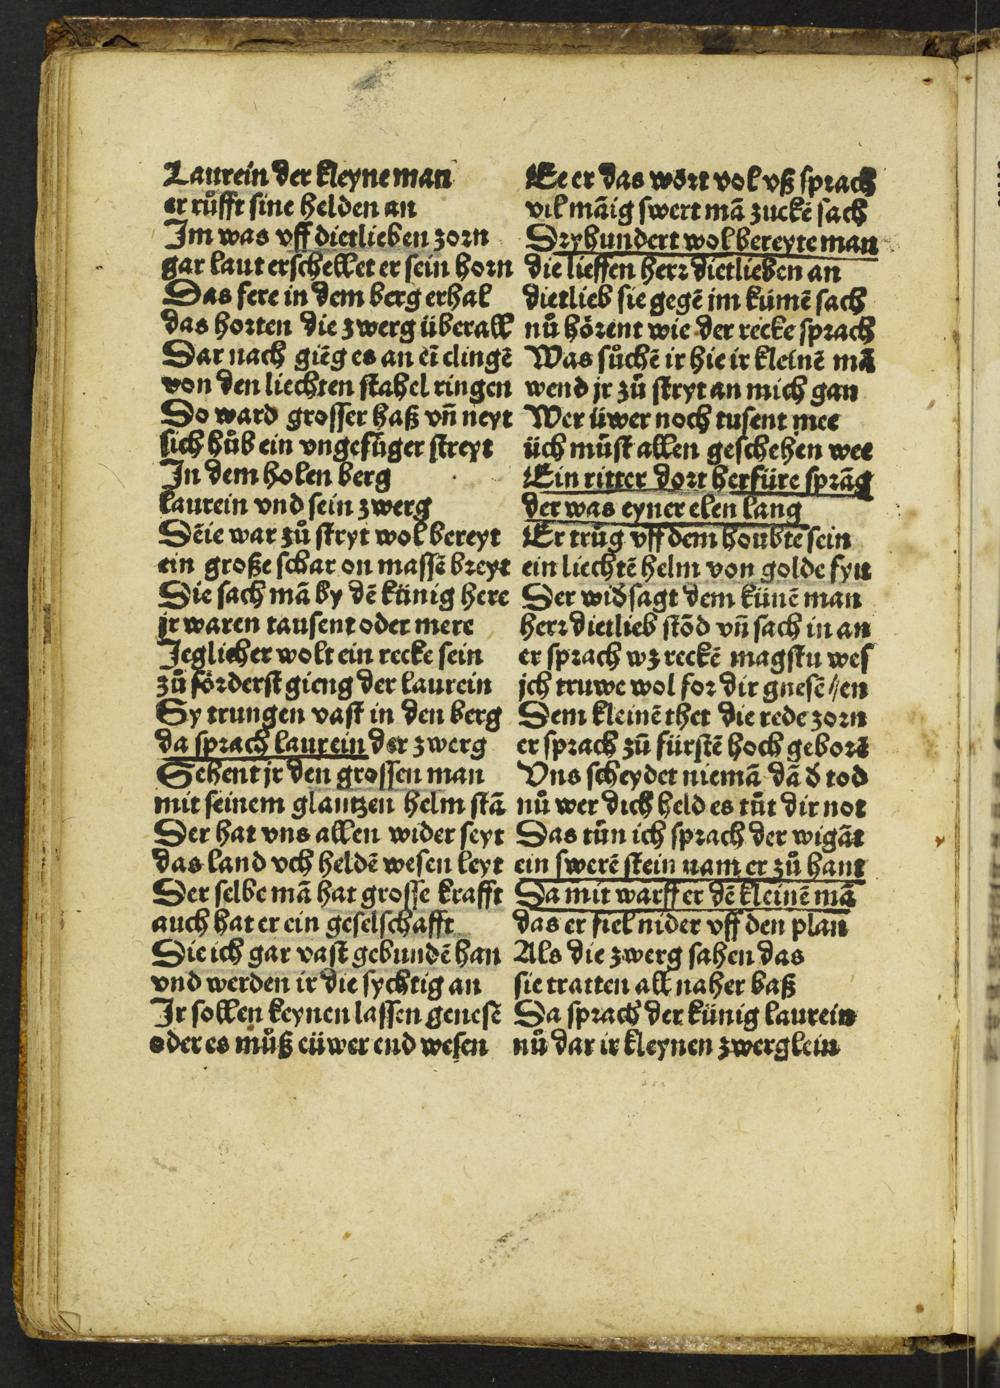 Laurein der kleyne man
er růfft sine helden an
Im was vff dietlieben zorn
gar laut erschellet er sein horn
Das fere in dem berg erhal
das horten die zwerg überall
Dar nach giēg es an eī clingē
von den liechten stahel ringen
Do ward grosser haß vn̄ neyt
sich hůb ein vngefůger streyt
In dem holen berg
laurein vnd sein zwerg
Dēie war zů stryt wol bereyt
ein große schar on massē breyt
Die sach mā by dē künig here
jr waren tausent oder mere
Jeglicher wolt ein recke sein
zů förderst gieng der laurein
Sy trungen vast in den berg
da sprach laurein der zwerg
Sehent jr den grossen man
mit seinem glantzen helm stā
Der hat vns allen wider seyt
das land vch heldē wesen leyt
Der selbe mā hat grosse krafft
auch hat er ein geselschafft
Die ich gar vast gebundē han
vnd werden ir die sychtig an
Ir sollen keynen lassen genesē
oder es můß eüwer end wesen
Ee er das wört vol vß sprach
vil māig swert mā zuckē sach
Dryhundert wol bereyte man
die lieffen herr dietlieben an
dietlieb sie gegē jm kümē sach
nů hörent wie der recke sprach
Was sůchē ir hie ir kleinē mā
wend jr zů stryt an mich gan
Wer üwer noch tusent mee
üch můst allen geschehen wee
Ein ritter dort herfüre sprāg
der was eyner elen lang
Er trůg vff dem houbte sein
ein liechtē helm von golde fyn
Der widsagt dem künē man
herr dietlieb stōd vn̄ sach in an
er sprach wz reckē magstu wes
jch truwe wol for dir gnesē //en
Dem kleinē thet die rede zorn
er sprach zů fürstē hoch geborē
Vns scheydet niemā dā d tod
nů wer dich held es tůt dir not
Das tůn ich sprach der wigāt
ein swerē stein nam er zů hant
Da mit warff er dē kleinē mā
das er fiel nider vff den plan
Als die zwerg sahen das
sie tratten all naher baß
Da sprach der künig laurein
nů dar ir kleynen zwerglein